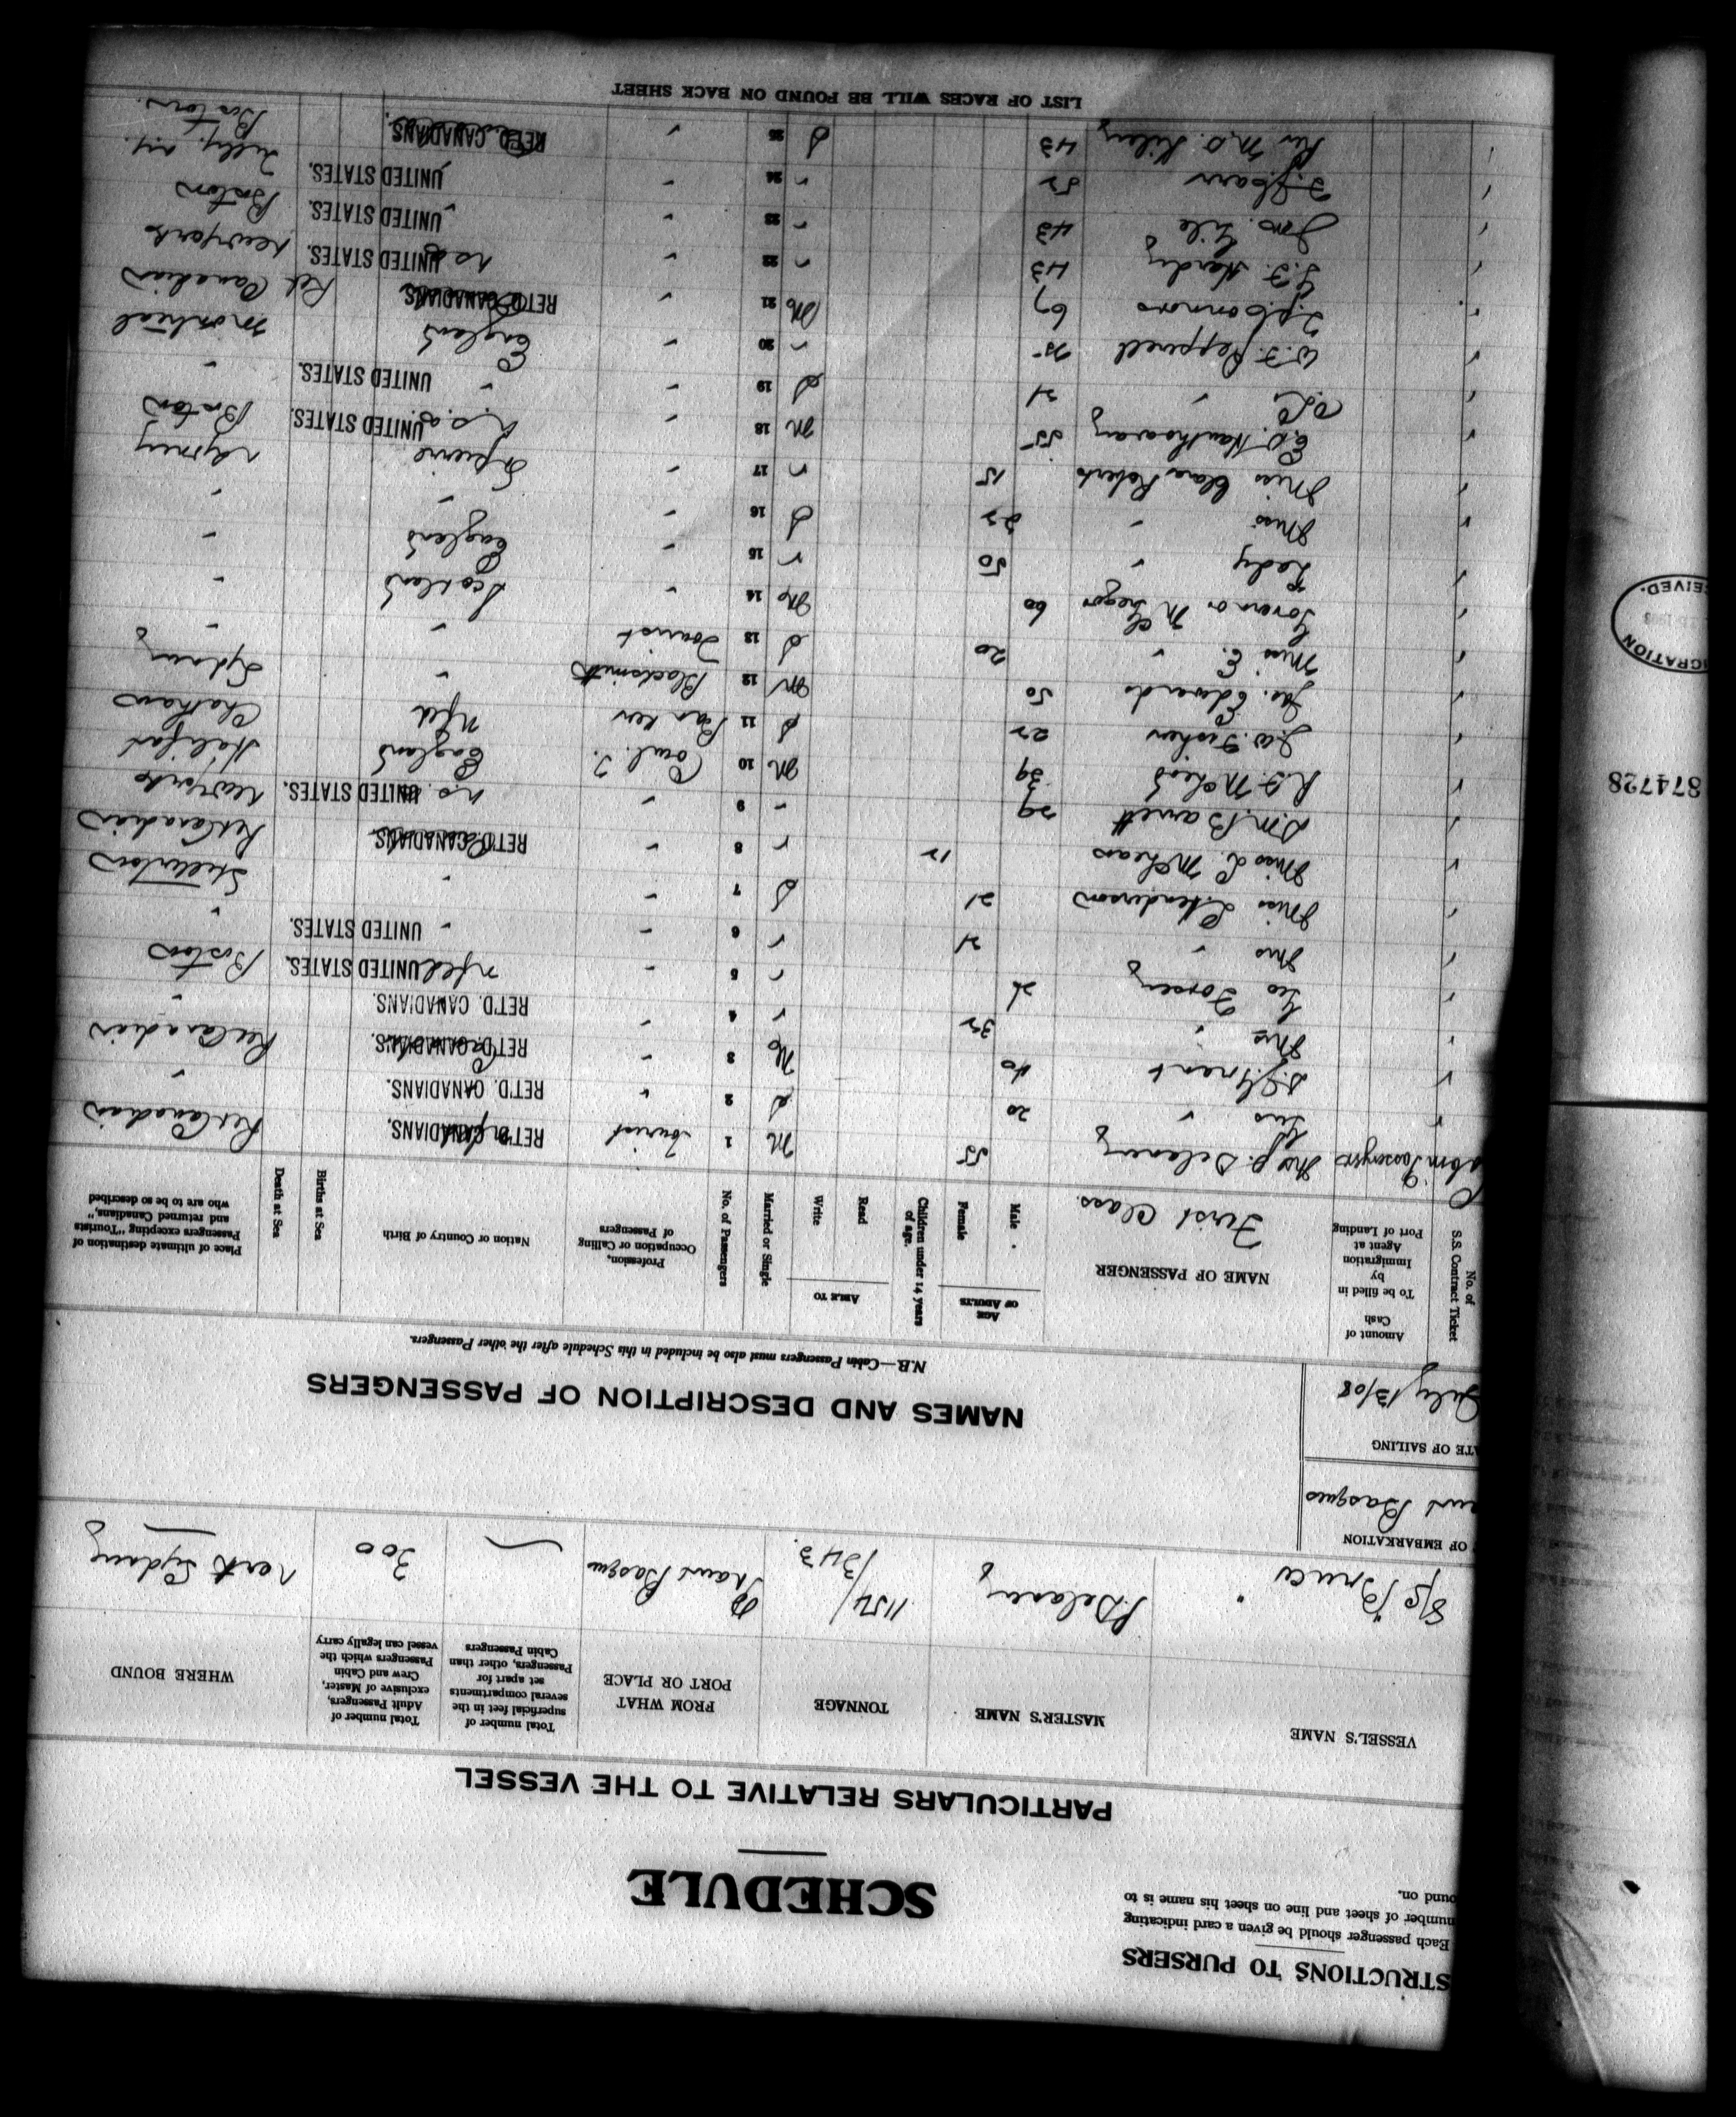 STRUCTIONS TO PURSERS
Each passenger should be given a card indicating
number of sheet and line on sheet his name is to
ound on.
SCHEDULE
PARTICULARS RELATIVE TO THE VESSEL
VESSEL'S NAME
MASTER'S NAME
TONNAGE
FROM WHAT PORT OR PLACE
Total number of superficial feet in the several compartments set apart for Passengers, other than Cabin Passengers
Total number of Adult Passengers, exclusive of Master, Crew and Cabin Passengers which the vessel can legally carry
WHERE BOUND
S/S "Bruce" P. Delaney 1154/1343. Port aux Basques 300 North Sydney
OF EMBARKATION
aux Basques
TE OF SAILING
July 13/08
NAMES AND DESCRIPTION OF PASSENGERS
N.B.—Cabin Passengers must also be included in this Schedule after the other Passengers.
No. of S.S. Contract Ticket
Amount of Cash
To be filled in by Immigration Agent at Port of Landing
NAME OF PASSENGER
First Class.
AGE OF ADULTS
Male
Female
Children under 14 years of age.
ABLE TO
Read
Write
Married or Single
No. of Passengers
Profession, Occupation or Calling of Passengers
Nation or Country of Birth
Births at Sea
Death at Sea
Place of ultimate destination of Passengers excepting "Tourists and returned Canadians," who are to be so described
Cabin Passengers Mrs P. Delaney 55 M 1 Tourist RET'D. CANADIANS. Ret Canadian
" 20 S 2 " RET'D. CANADIANS. "
Grant 40 M 3 " RET'D. CANADIANS. Ret Canadian
Mrs " 32 " 4 " RET'D. CANADIANS. "
Geo Forsey 26 " 5 " Nfld UNITED STATES. Boston
Mrs " 21 " 6 " " UNITED STATES. "
Miss L. Henderson 21 S 7 " " Stellarton
Miss L. McLean 12 " 8 " RET'D. CANADIANS. Ret Canadian
D.M. Barrett 29 " 9 " U.S. UNITED STATES. New York
R.F. McLeod 39 M 10 England Halifax
J.W. Fisher 22 S 11 Banker Nfld Chatham
Jas. Edwards 50 M 12 Blacksmith " Sydney
Miss E. " 20 S 13 Tourist " "
Governor McGregor 60 M 14 " Scotland "
Lady " 50 " 15 " England "
Miss " 22 S 16 " " "
Miss Clara Roberts 15 " 17 " St Pierre
E.D. Hawthoway 55 M 18 " U.S.A. UNITED STATES. Boston
" 21 S 19 " " UNITED STATES. "
W.F. Pepperell 25 " 20 " England Montreal
Connors 67 M 21 " RET'D. CANADIANS. Ret Canadian
Hardy 43 " 22 " U.S. UNITED STATES. New York
Jno. 43 " 23 " " UNITED STATES. Boston
52 " 24 " " UNITED STATES.
Rev M.O. 43 S 25 " RET'D. CANADIANS. Boston.
LIST OF RACES WILL BE FOUND ON BACK SHEET
874728
GRATION
CEIVED.